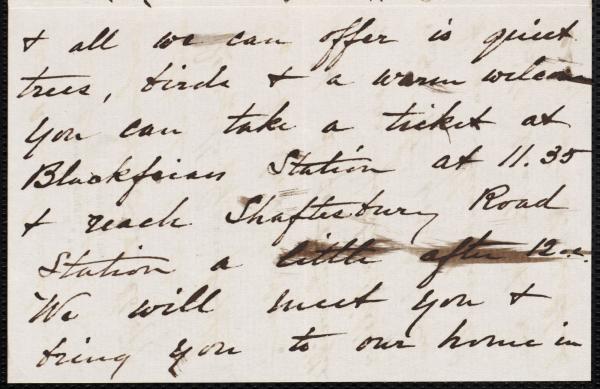 & all we can offer is quiet
trees, birds & a warm welcome
You can take a ticket at
Blackfriars Station at 11.35
& reach Shaftesbury Road
Station a little after 12
We will meet you &
bring you to our home in